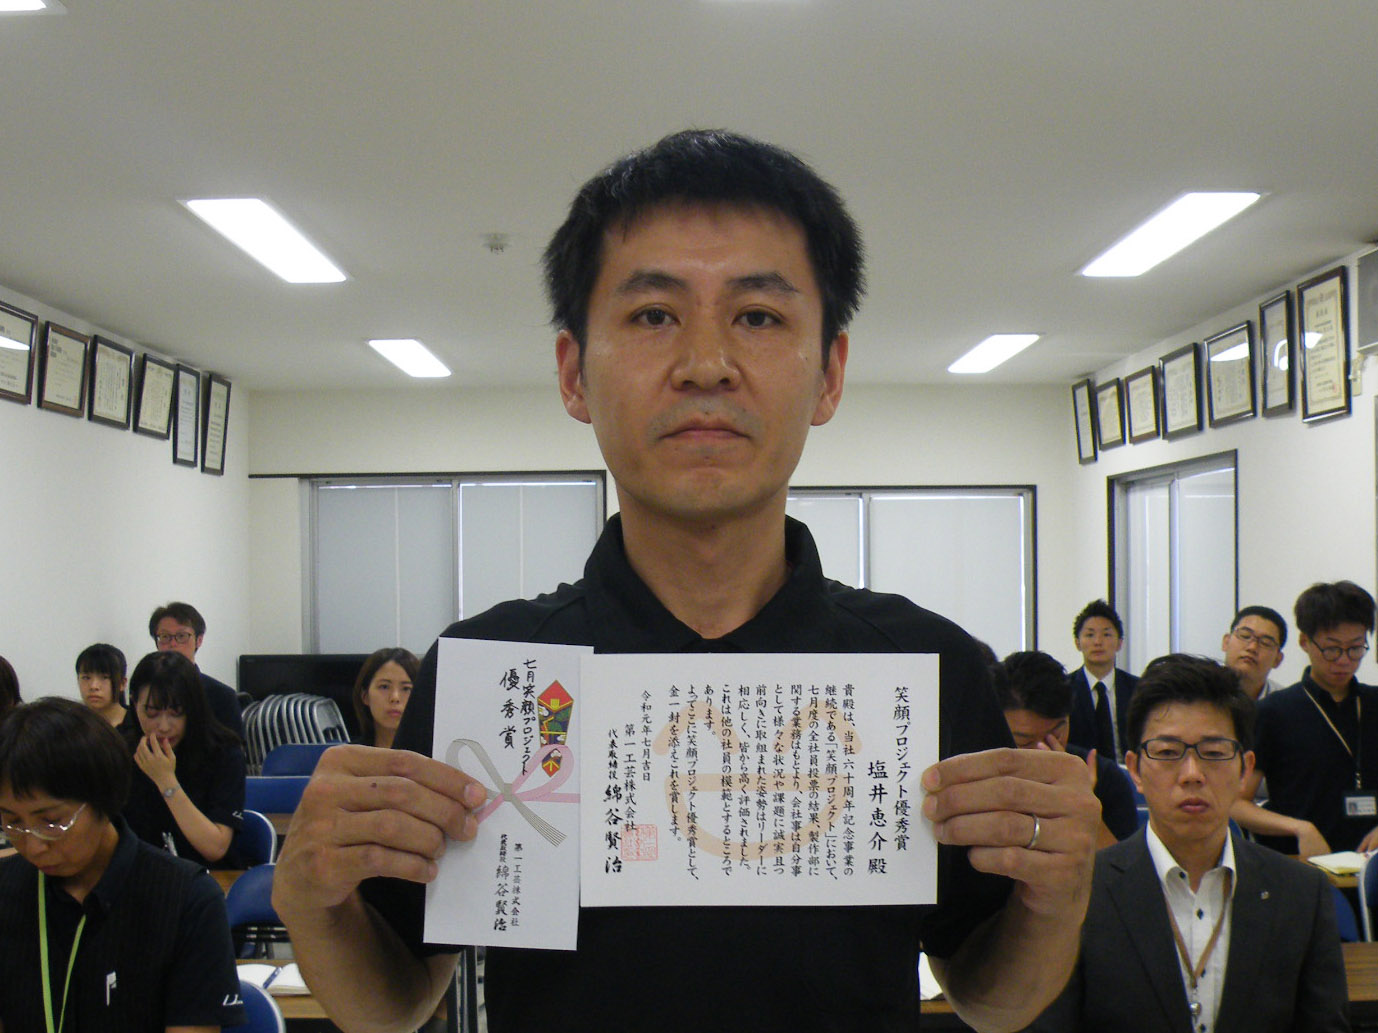 笑顔プロジェクト優秀賞
塩井恵介 殿
貴殿は、当社六十周年記念事業の
継続である「笑顔プロジェクト」において、
七月度の全社員投票の結果、製作部に
関する業務はもとより、会社事は自分事
として様々な状況や課題に誠実且つ
前向きに取組まれた姿勢はリーダーに
相応しく、皆から高く評価されました。
これは他の社員の模範とするところで
あります。
よってここに笑顔プロジェクト優秀賞として、
金一封を添えこれを賞します。
令和元年七月吉日
第一工芸株式会社
代表取締役 綿谷賢治
七月笑顔プロジェクト
優秀賞
第一工芸株式会社
代表取締役 綿谷賢治